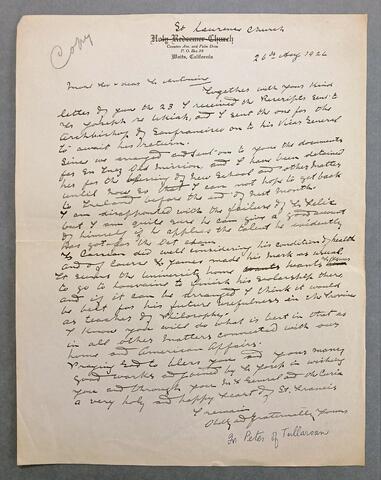 Copy
St Laurence Church
Holy Redeemer Church
Compton Ave. and Palm Drive
P. O. Box 38
Watts, California
26th Aug 1926
Most Rev & dear Fr Antonine
Together with your kind
letter of you the 23 I received the Rescripts sent to
Fr Joseph re Ukiah, and I sent the one for the
Archbishop of Sanfrancisco on to his Vicar General
to await his return.
Since we arranged and sent on to you the documents
for Sn Inez Old Mission, and I have been detained
here for the opening of New School and other matters
until now so that I can not hope to get back
to Ireland before the end of next month.
I am disappointed with the failure of Fr Felix
but I am quite sure he can give a good account
of himself if he applies the talent he evidently
has got for the Oct exam.
Fr Carrian did well considering his condition of health
and of course Fr James made his mark as usual
He leaves the University home
to go to Louvain to finish his scholarship there,
and if it can be arranged I think it would
be best for his future usefulness in the Province
as teacher of Philosophy.
I know you will do what is best in that as
in all other matters connected with our
home and American Affairs.
Praying God to bless you and your many
good works and joined by Fr Joseph in wishing
you and through you M R General and the Curia
a very holy and happy Feast of St. Francis
I remain
Obtly and fraternally Yours
Fr Peter of Tullaroan